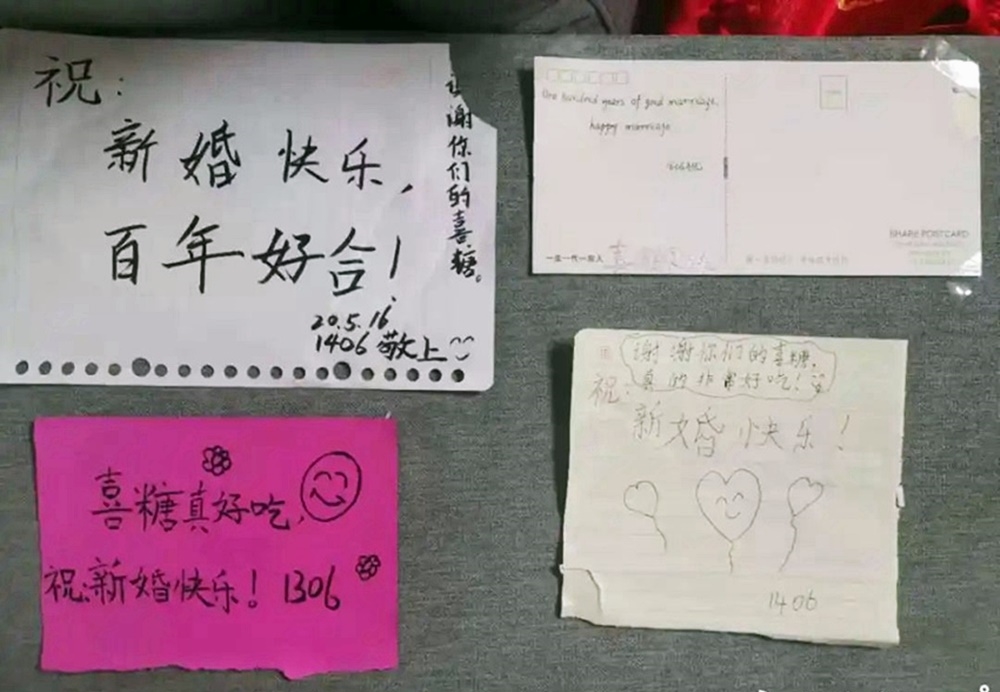 祝:
新婚快乐,
百年好合!
谢你们的喜糖。
20.5.16
1406敬上
One hundred years of good marriage,
happy marriage
SHARE POSTCARD
喜糖真好吃,
祝:新婚快乐! 1306
谢谢你们的喜糖,
真的非常好吃!
祝:
新婚快乐!
1406